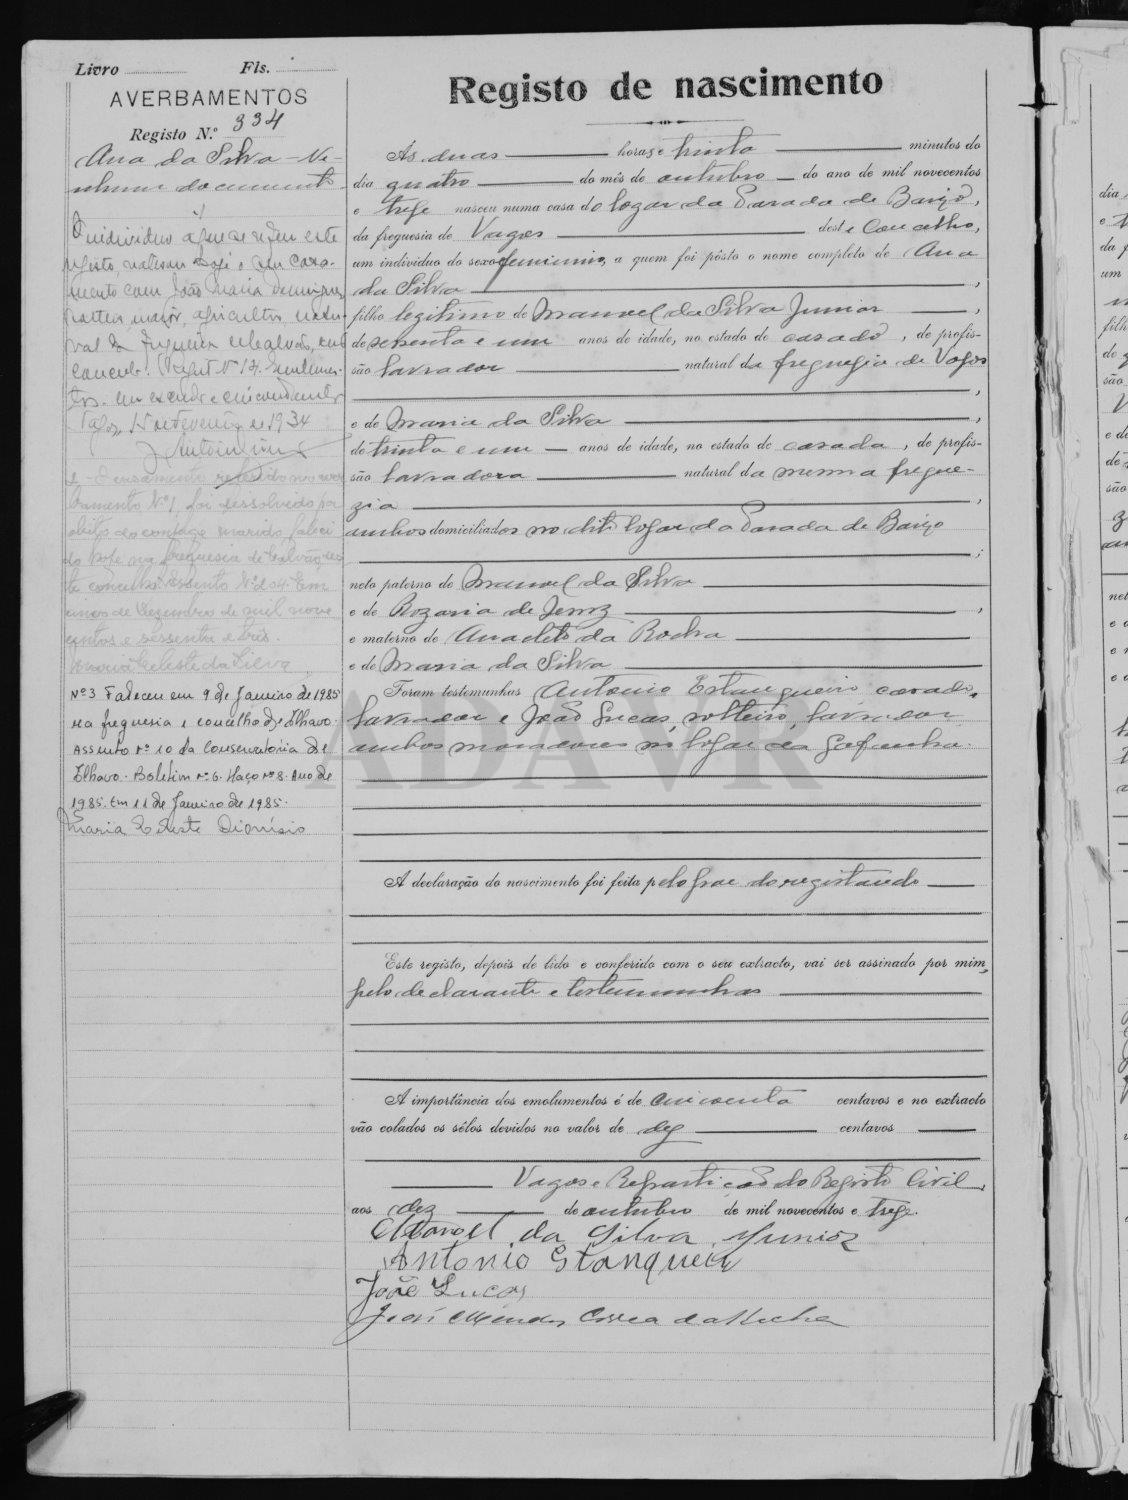 Livro Fls.
AVERBAMENTOS
Registo N.º 334
Ana da Silva — Ne-
nhum documento
1
O individuo a que se refere este
registo, realisou hoje o seu casa-
mento com João Maria Domingues,
solteiro, maior, agricultor, natu-
ral da freguesia de Calvão, deste
concelho. Regist. Nº 17.
Vagos, de Fevereiro de 1934
2 - O casamento referido no aver-
bamento Nº 1, foi dissolvido por
obito do conjuge marido, faleci-
do hoje na freguesia de Calvão, des-
te concelho. Assento Nº 204. Em
cinco de Dezembro de mil nove
centos e sessenta e três.
Maria Celeste da Silva
Nº 3 Faleceu em 9 de Janeiro de 1985
na freguesia e concelho de Ílhavo.
Assento nº 10 da Conservatória de
Ílhavo. Boletim nº 6. Maço nº 8. Ano de
1985. Em 11 de Janeiro de 1985.
Maria Celeste Dionísio
Registo de nascimento
Às duas horas e trinta minutos do
dia quatro do mês de outubro do ano de mil novecentos
e treze nasceu numa casa do logar da Parada de Baixo,
da freguesia de Vagos deste Concelho,
um individuo do sexo femenino, a quem foi pôsto o nome completo de Ana
da Silva,
filho legitimo de Manoel da Silva Junior,
de sesenta e um anos de idade, no estado de casado, de profis-
são lavrador natural da freguesia de Vagos
,
e de Maria da Silva,
de trinta e um anos de idade, no estado de casada, de profis-
são lavradora natural da mesma fregue-
zia,
ambos domiciliados no dito logar da Parada de Baixo
;
neto paterno de Manuel da Silva
e de Rozaria de Jesuz,
e materno de Anacleto da Rocha
e de Maria da Silva
Foram testemunhas Antonio Estanqueiro, casado,
lavrador e João Lucas, solteiro, lavrador
ambos moradores no logar da Gafanha.
ADAVR
A declaração do nascimento foi feita pelo pae do registando
Este registo, depois de lido e conferido com o seu extracto, vai ser assinado por mim,
pelo declarante e testemunhas
A importância dos emolumentos é de cincoenta centavos e no extracto
vão colados os sêlos devidos no valor de dez centavos
Vagos e Repartição do Registo Civil,
aos dez de outubro de mil novecentos e treze.
Manoel da Silva Junior
Antonio Stanqueiro
João Lucas
José Mendes Correa da Rocha